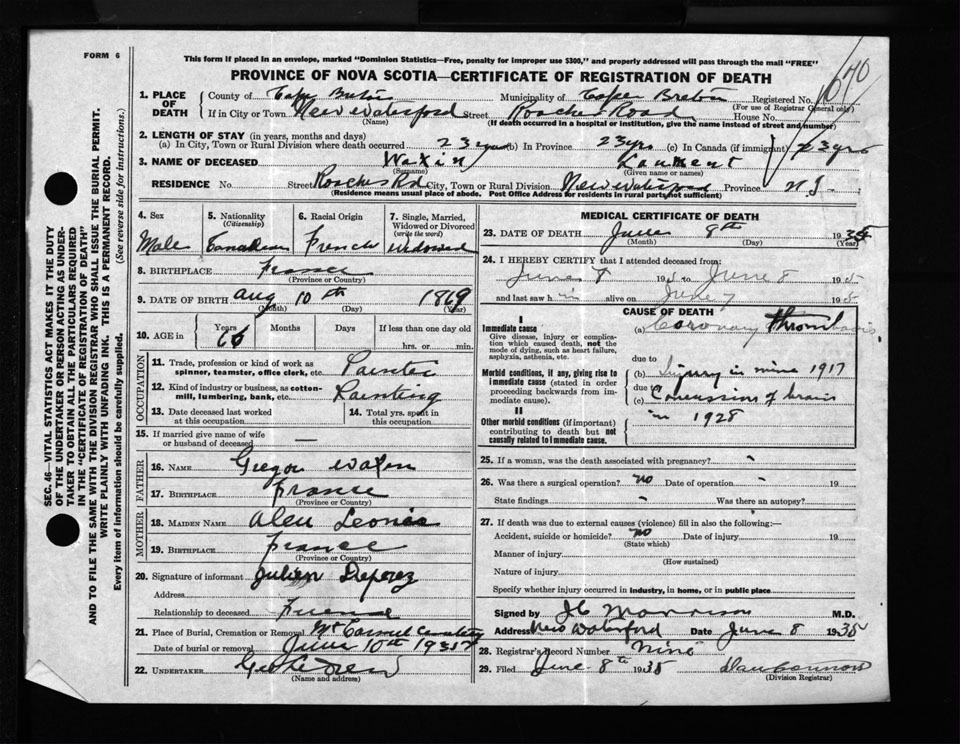 FORM 6
This form if placed in an envelope, marked "Dominion Statistics—Free, penalty for improper use $300," and properly addressed will pass through the mail "FREE"
PROVINCE OF NOVA SCOTIA—CERTIFICATE OF REGISTRATION OF DEATH
SEC. 46—VITAL STATISTICS ACT MAKES IT THE DUTY
OF THE UNDERTAKER OR PERSON ACTING AS UNDER-
TAKER TO OBTAIN ALL THE PARTICULARS REQUIRED
IN THE "CERTIFICATE OF REGISTRATION OF DEATH"
AND TO FILE THE SAME WITH THE DIVISION REGISTRAR WHO SHALL ISSUE THE BURIAL PERMIT.
WRITE PLAINLY WITH UNFADING INK. THIS IS A PERMANENT RECORD.
Every item of information should be carefully supplied. (See reverse side for instructions.)
1. PLACE OF DEATH County of Cape Breton Municipality of Cape Breton Registered No.
(For use of Registrar General only)
If in City or Town New Waterford Street Road House No.
(Name) (If death occurred in a hospital or institution, give the name instead of street and number)
2. LENGTH OF STAY (in years, months and days)
(a) In City, Town or Rural Division where death occurred 23 yrs (b) In Province 23 yrs (c) In Canada (if immigrant) 23 yrs
3. NAME OF DECEASED Waxin Laurent
(Surname) (Given name or names)
RESIDENCE No. Street Rd City, Town or Rural Division New Waterford Province N.S.
(Residence means usual place of abode. Post Office Address for residents in rural parts not sufficient)
4. Sex 5. Nationality (Citizenship) 6. Racial Origin 7. Single, Married, Widowed or Divorced (write the word)
Male Canadian French Widowed
8. BIRTHPLACE France
(Province or Country)
9. DATE OF BIRTH Aug 10th 1869
(Month) (Day) (Year)
10. AGE in Years Months Days If less than one day old
66 hrs. or min.
OCCUPATION
11. Trade, profession or kind of work as spinner, teamster, office clerk, etc. Painter
12. Kind of industry or business, as cotton-mill, lumbering, bank, etc. Painting
13. Date deceased last worked at this occupation 14. Total yrs. spent in this occupation
15. If married give name of wife or husband of deceased —
FATHER
16. NAME
17. BIRTHPLACE France
(Province or Country)
MOTHER
18. MAIDEN NAME
19. BIRTHPLACE France
(Province or Country)
20. Signature of informant Julien
Address
Relationship to deceased Friend
21. Place of Burial, Cremation or Removal Mt Carmel Cemetery
Date of burial or removal June 10th 1935
22. UNDERTAKER
(Name and address)
MEDICAL CERTIFICATE OF DEATH
23. DATE OF DEATH June 8th 1935
(Month) (Day) (Year)
24. I HEREBY CERTIFY that I attended deceased from:
June 8 1935 to June 8 1935
and last saw him alive on June 7 1935
CAUSE OF DEATH
I
Immediate cause
Give disease, injury or complication which caused death, not the mode of dying, such as heart failure, asphyxia, asthenia, etc.
(a) Coronary thrombosis
due to
Morbid conditions, if any, giving rise to immediate cause (stated in order proceeding backwards from immediate cause).
(b) Injury in mine 1917
due to
(c) Concussion of brain
in 1928
II
Other morbid conditions (if important) contributing to death but not causally related to immediate cause.
25. If a woman, was the death associated with pregnancy?
26. Was there a surgical operation? no Date of operation 19
State findings Was there an autopsy?
27. If death was due to external causes (violence) fill in also the following:—
Accident, suicide or homicide? no Date of injury 19
(State which)
Manner of injury
(How sustained)
Nature of injury
Specify whether injury occurred in industry, in home, or in public place
Signed by J C Morrison M.D.
Address New Waterford Date June 8 1935
28. Registrar's Record Number Nine
29. Filed June 8th 1935
(Division Registrar)